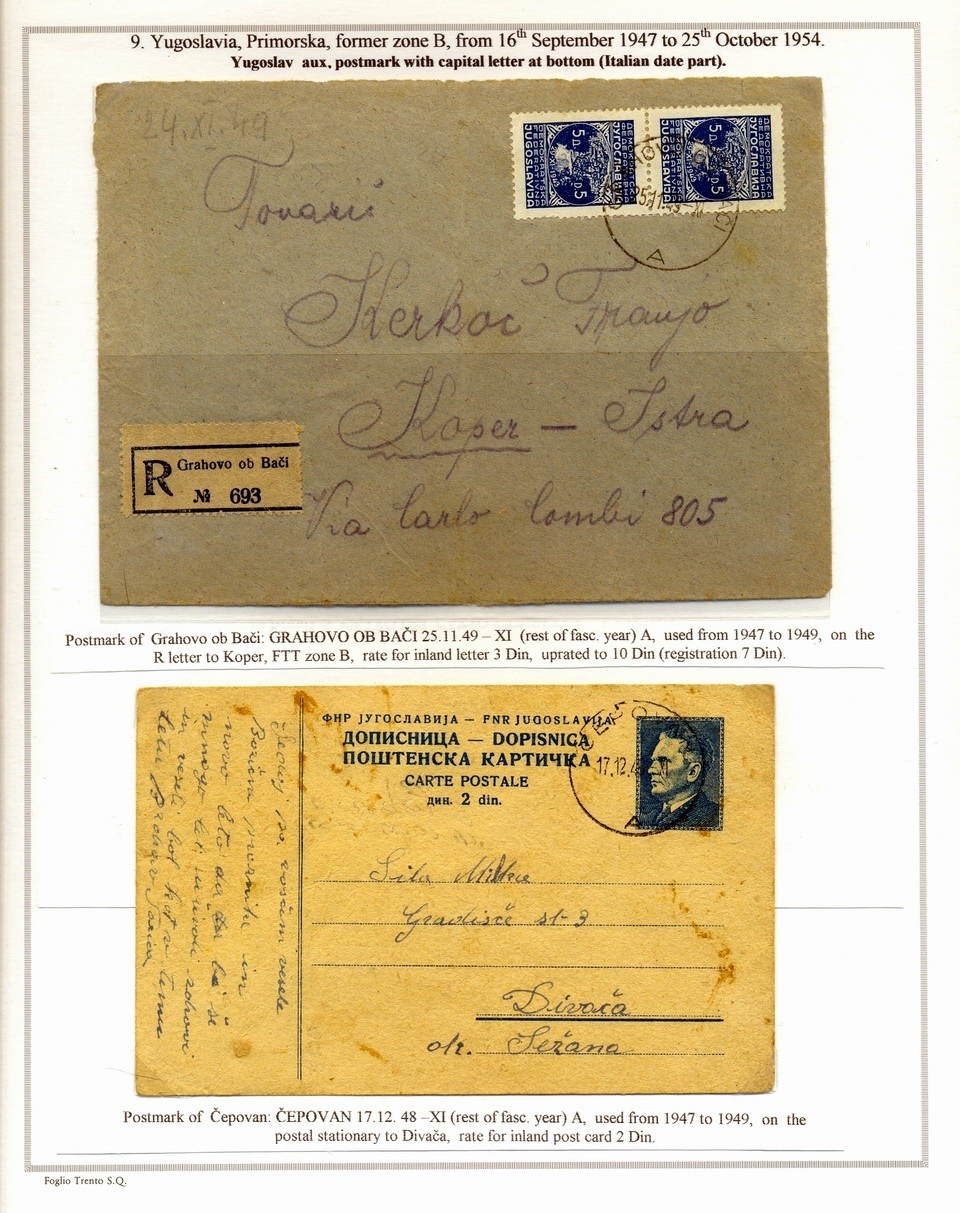 9. Yugoslavia, Primorska, former zone B, from 16th September 1947 to 25th October 1954.
Yugoslav aux. postmark with capital letter at bottom (Italian date part).
24.XI.49
Tovariš
Kerkoč Franjo
Koper – Istra
Via Carlo Combi 805
A
R Grahovo ob Bači
№ 693
Postmark of Grahovo ob Bači: GRAHOVO OB BAČI 25.11.49 – XI (rest of fasc. year) A, used from 1947 to 1949, on the
R letter to Koper, FTT zone B, rate for inland letter 3 Din, uprated to 10 Din (registration 7 Din).
ФНР ЈУГОСЛАВИЈА – FNR JUGOSLAVIJA
ДОПИСНИЦА — DOPISNICA
ПОШТЕНСКА КАРТИЧКА
CARTE POSTALE
дин. 2 din.
17.12.4
A
Gradišče št 3
Divača
ok. Sežana
vesele
Božične praznike in
novo leto da
Postmark of Čepovan: ČEPOVAN 17.12. 48 –XI (rest of fasc. year) A, used from 1947 to 1949, on the
postal stationary to Divača, rate for inland post card 2 Din.
Foglio Trento S.Q.